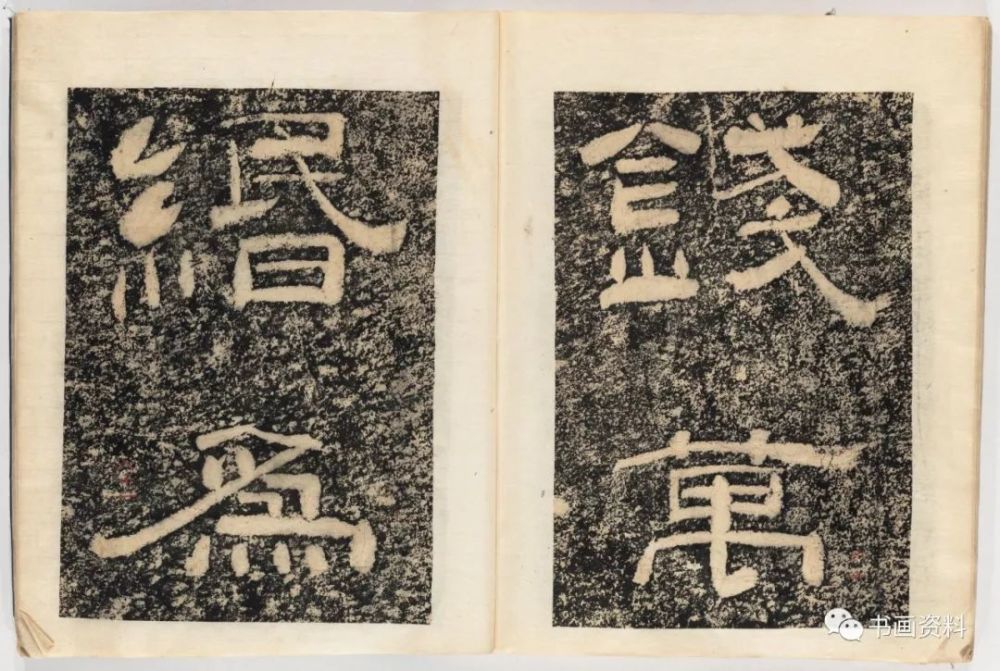 錢萬
緡為
书画资料